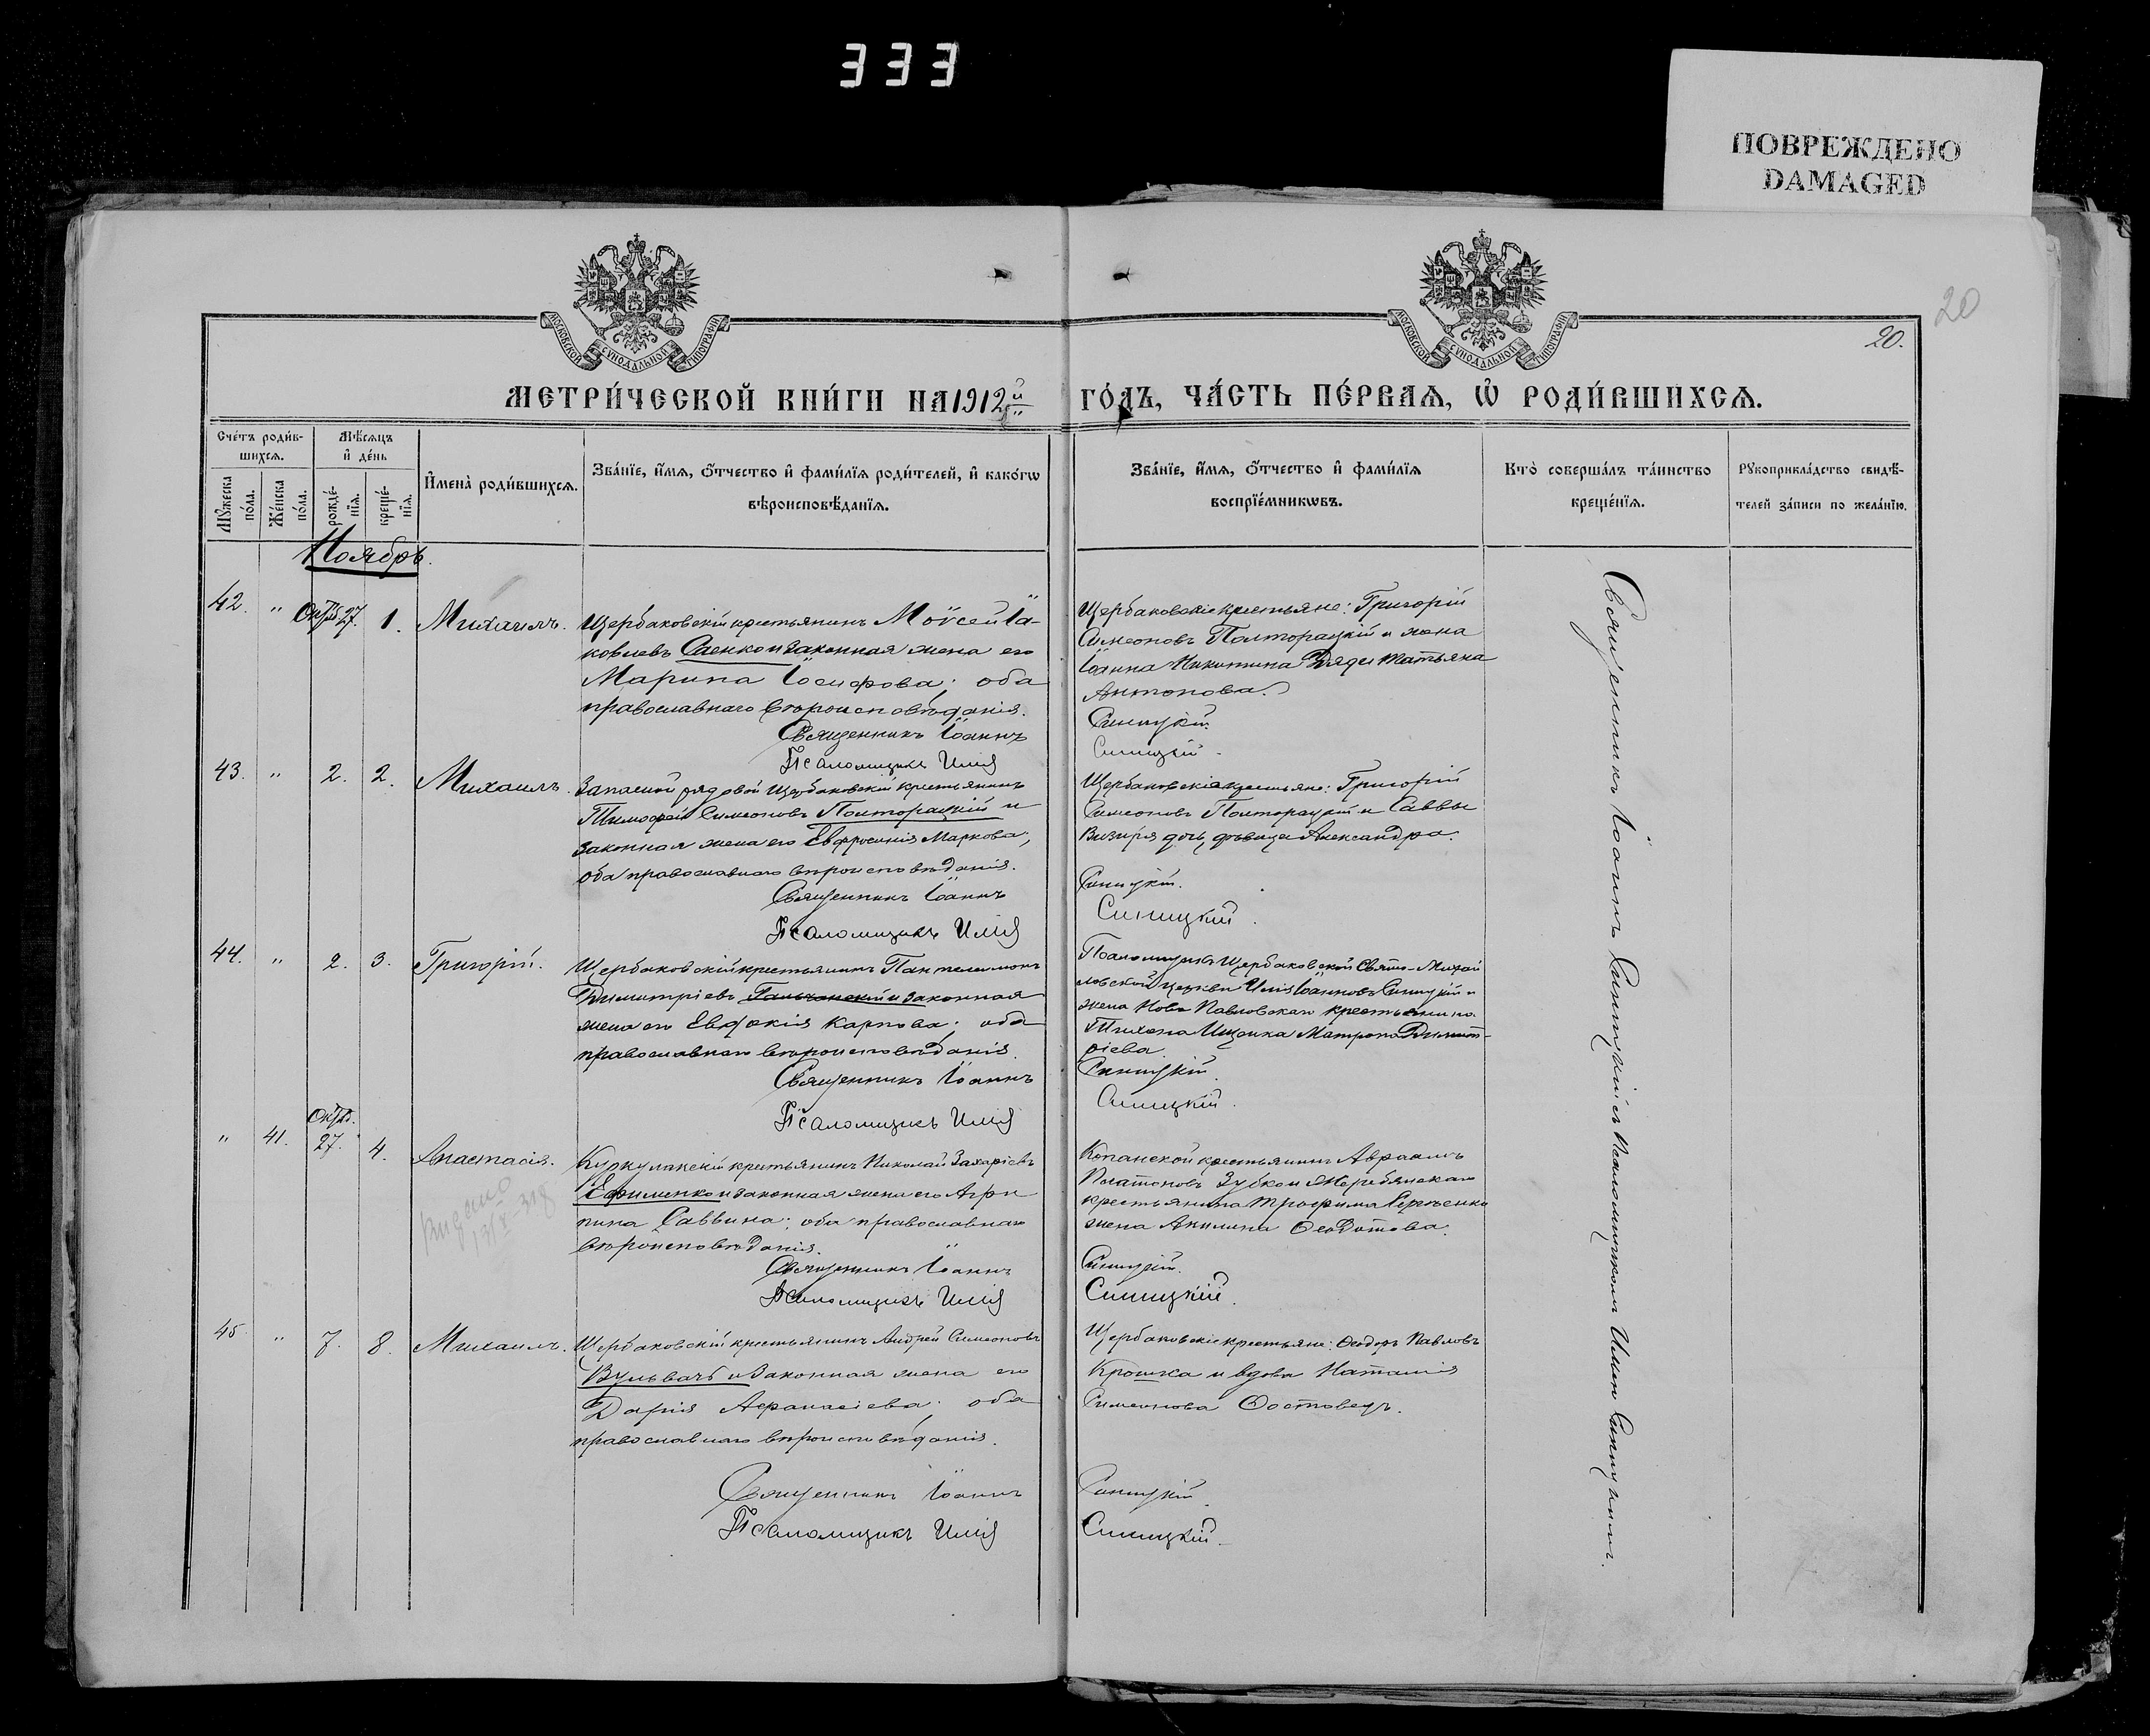 333
ПОВРЕЖДЕНО
DAMAGED
МОСКОВСКОЙ СѴНОДАЛЬНОЙ ТИПОГРАФІИ
МОСКОВСКОЙ СѴНОДАЛЬНОЙ ТИПОГРАФІИ
20
20.
МЕТРИ́ЧЕСКОЙ КНИ́ГИ НА 1912й
ГО́ДЪ, ЧА́СТЬ ПЕ́РВАЯ, Ѡ҆ РОДИ́ВШИХСЯ.
Сче́тъ роди́в-
шихся.
Мѣ́сяцъ
и҆ де́нь
Мꙋ́жеска
по́ла.
Же́нска
по́ла.
рожде́-
нїя.
креще́-
нїя.
И҆мена̀ роди́вшихся.
Зва́нїе, и҆́мя, ѻ҆́тчество и҆ фами́лїя роди́телей, и҆ како́гѡ
вѣроисповѣ́данїя.
Зва́нїе, и҆́мя, ѻ҆́тчество и҆ фами́лїя
воспрїе́мникѡвъ.
Кто̀ соверша́лъ та́инство
креще́нїя.
Рꙋкоприкла́дство свидѣ́-
телей за́писи по жела́нїю.
Ноябрь.
42. " Октб 27. 1. Михаилъ.
Щербаковскій крестьянинъ Моѵсей Іа-
ковлевъ Саенко и законная жена его
Марина Іосифова; оба
православнаго вѣроисповѣданія.
Священникъ Іоаннъ
Псаломщикъ Илія
Щербаковскіе крестьяне: Григорій
Симеоновъ Полторацкій и жена
Іоанна Никитина Татьяна
Антонова.
Синицкій.
Синицкій.
43. " 2. 2. Михаилъ.
Запасной рядовой Щербаковскій крестьянинъ
Тимофей Симеоновъ Полторацкій и
законная жена его Евфросинія Маркова;
оба православнаго вѣроисповѣданія.
Священникъ Іоаннъ
Псаломщикъ Илія
Щербаковскіе крестьяне: Григорій
Симеоновъ Полторацкій и Саввы
Визиря дочь, дѣвица Александра.
Синицкій.
Синицкий.
44. " 2. 3. Григорій.
Щербаковскій крестьянинъ Пантелеимонъ
Димитріевъ Гальчанскій и законная
жена его Евдокія Карпова; оба
православнаго вѣроисповѣданія.
Священникъ Іоаннъ
Псаломщикъ Илія
Псаломщикъ Щербаковской Свято-Михай
ловской церкви Илія Іоанновъ Синицкій и
жена Ново Павловскаго крестьянина
Тихона Ищенка Матрона Димит-
ріева.
Синицкій
Синицкій.
" 41. Октб. 27. 4. Анастасія.
Куркулакскій крестьянинъ Николай Захаріевъ
Ефименко и законная жена его Агри
пина Саввина; оба православнаго
вѣроисповѣданія.
Священникъ Іоаннъ
Псаломщикъ Илія
Копанской крестьянинъ Авраамъ
Платоновъ Зубко и Жеребянскаго
крестьянина Трофима Сергіенко
жена Акилина Ѳеодотова.
Синицкій.
Синицкій.
45 " 7. 8. Михаилъ.
Щербаковскій крестьянинъ Андрей Симеоновъ
Вульвачъ и законная жена его
Дарія Аѳанасіева; оба
православнаго вѣроисповѣданія.
Священникъ Іоаннъ
Псаломщикъ Илія
Щербаковскіе крестьяне: Ѳеодоръ Павловъ
Крошка и вдова Наталія
Симеонова
Синицкій
Синицкій.
Священникъ Іоаннъ Синицкій съ псаломщикомъ Иліею Синицкимъ.